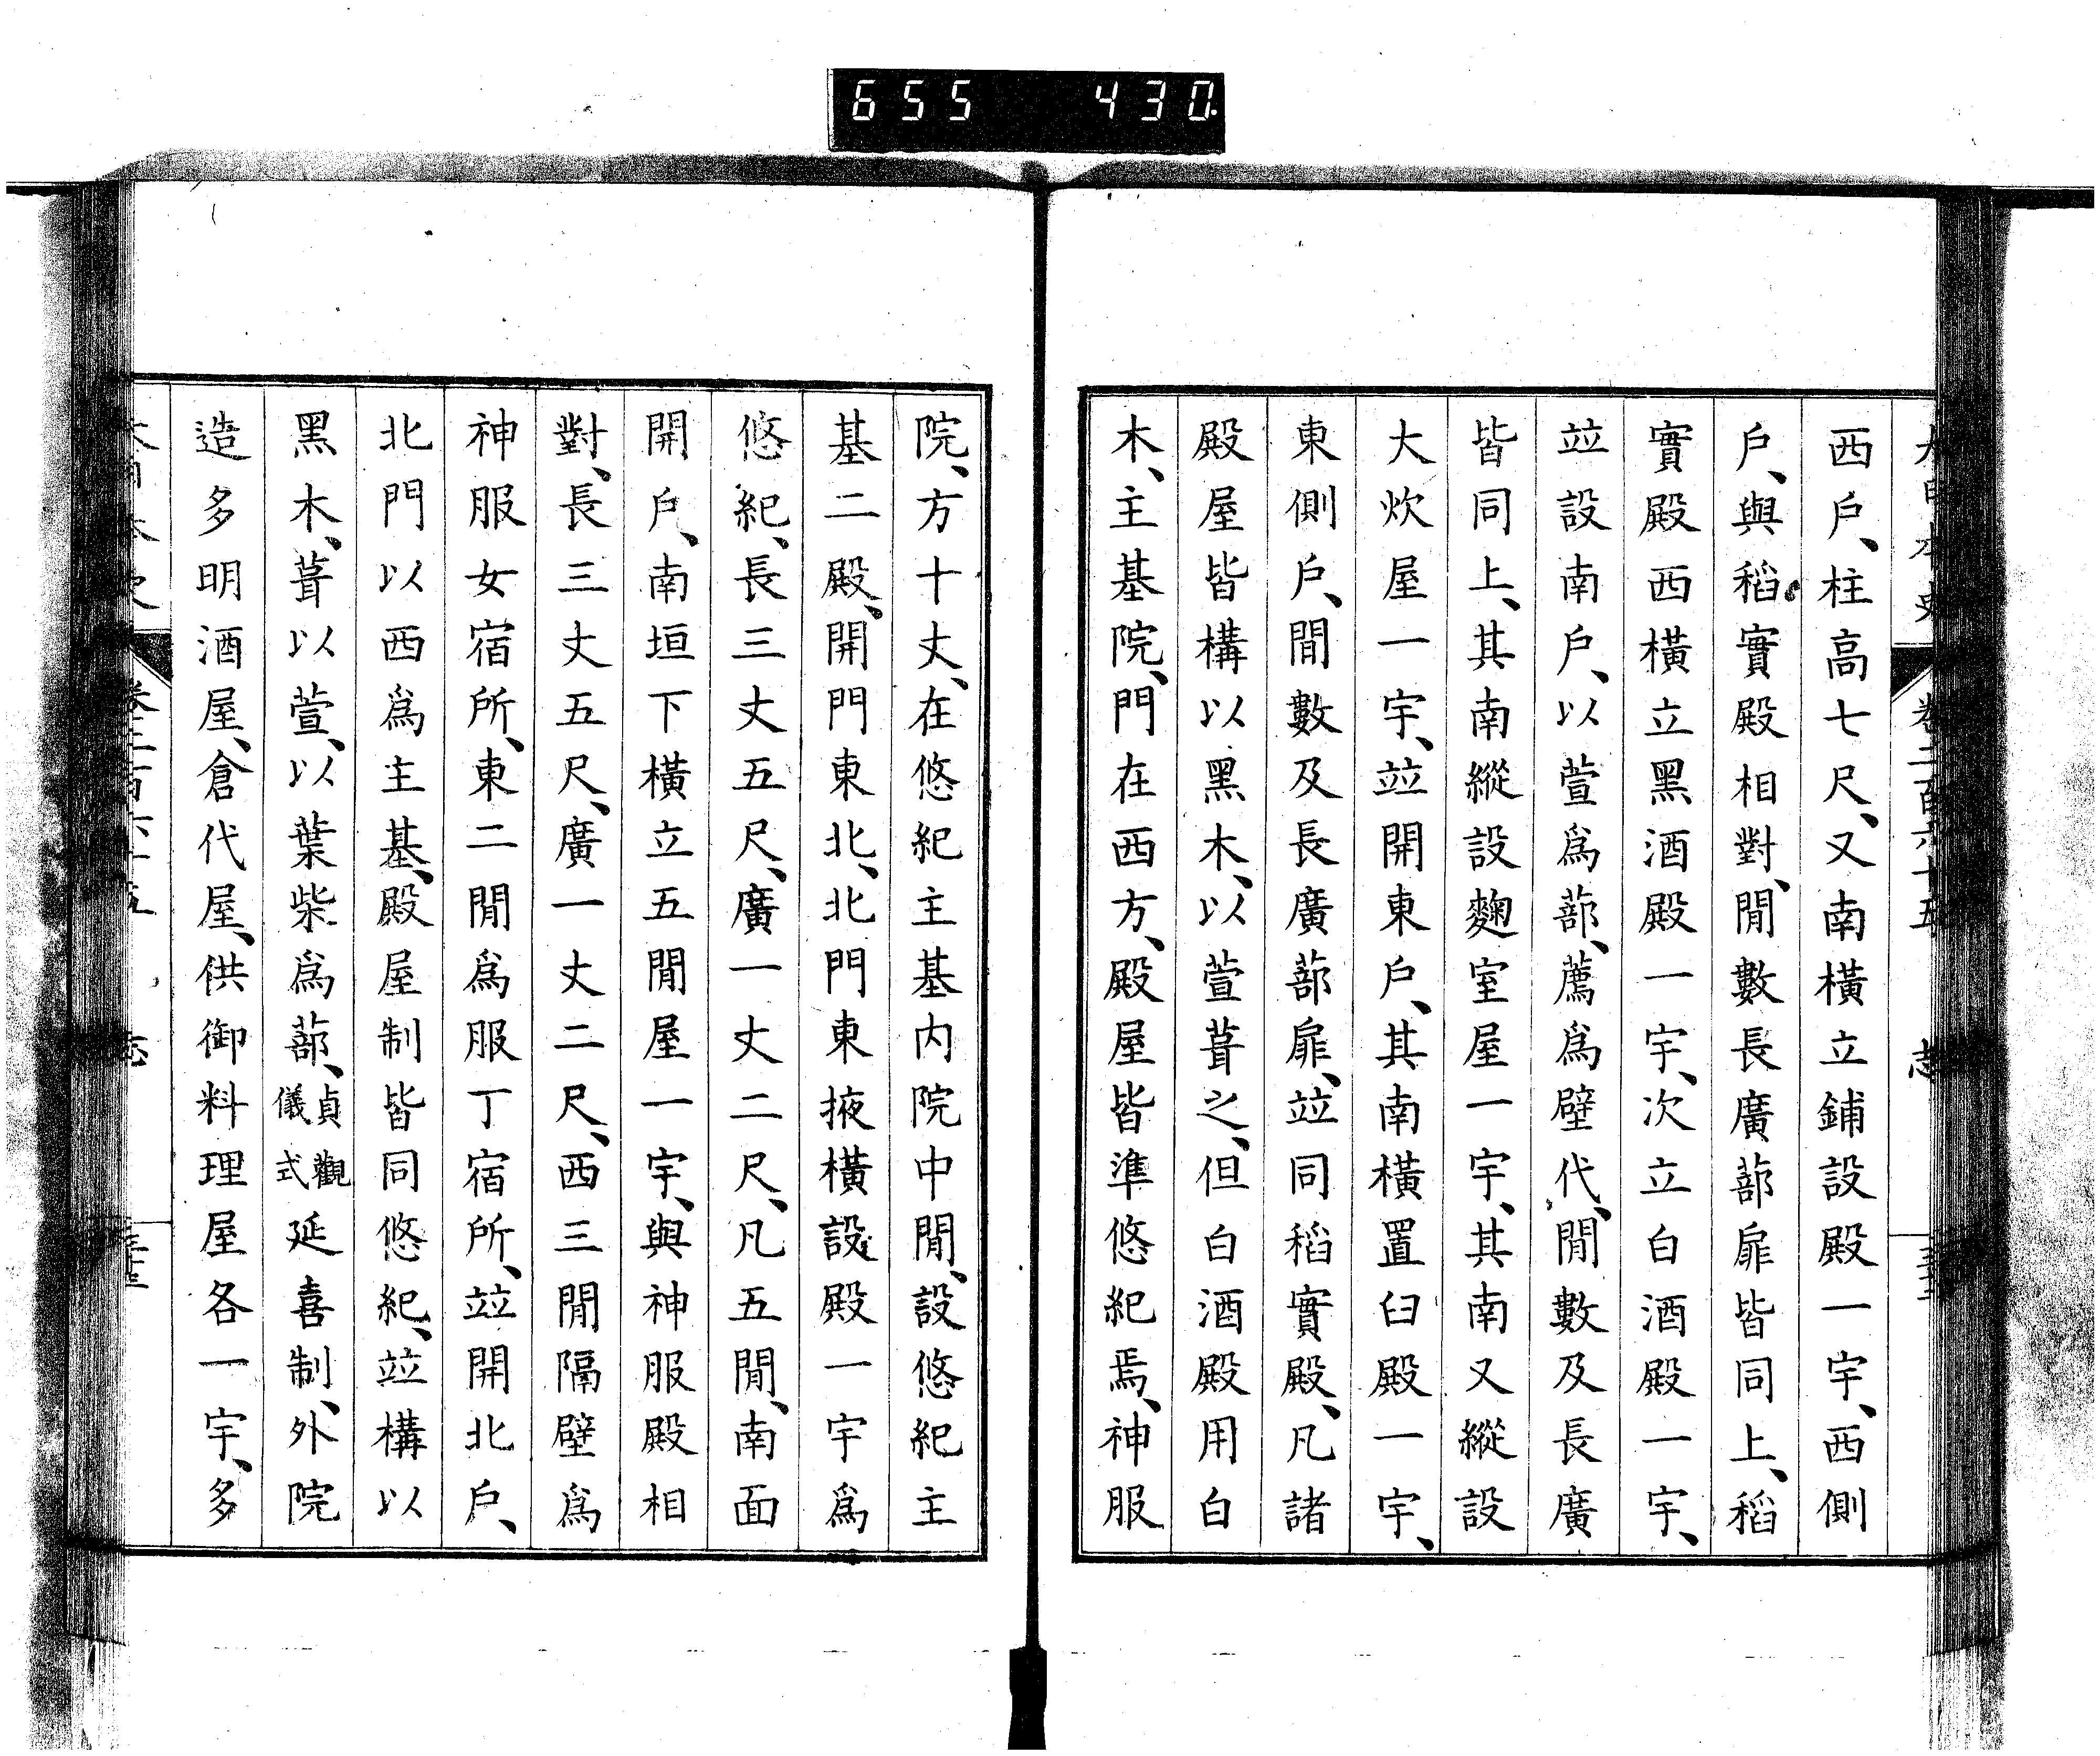 655 430
西戶、柱高七尺、又南橫立鋪設殿一宇、西側
戶、與稻實殿相對、閒數長廣蔀扉皆同上、稻
實殿西橫立黑酒殿一宇、次立白酒殿一宇、
竝設南戶、以萱爲蔀、薦爲壁代、閒數及長廣
皆同上、其南縱設麴室屋一宇、其南又縱設
大炊屋一宇、竝開東戶、其南橫置臼殿一宇、
東側戶、閒數及長廣蔀扉、竝同稻實殿、凡諸
殿屋皆構以黑木、以萱葺之、但白酒殿用白
木、主基院、門在西方、殿屋皆準悠紀焉、神服
院、方十丈、在悠紀主基内院中閒、設悠紀主
基二殿、開門東北、北門東掖橫設殿一宇爲
悠紀、長三丈五尺、廣一丈二尺、凡五閒、南面
開戶、南垣下橫立五閒屋一宇、與神服殿相
對、長三丈五尺、廣一丈二尺、西三閒隔壁爲
神服女宿所、東二閒爲服丁宿所、竝開北戶、
北門以西爲主基、殿屋制皆同悠紀、竝構以
黑木、葺以萱、以葉柴爲蔀、貞觀儀式延喜制、外院
造多明酒屋、倉代屋、供御料理屋各一宇、多